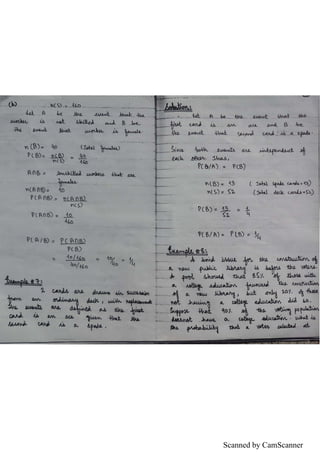 (b) n(S) = 160
Let A be the event that the
worker is not skilled and B be
the event that worker is female.
n(B) = 40 (Total females)
P(B) = n(B)/n(S) = 40/160
A∩B = unskilled workers that are
females
n(A∩B) = 10
P(A∩B) = n(A∩B)/n(S)
P(A∩B) = 10/160
P(A/B) = P(A∩B)/P(B)
= 10/160 / 40/160 = 10/40 = 1/4
Example # 7:
2 cards are drawn in succession
from an ordinary deck, with replacement
The events are defined as the first
card is an ace given that the
second card is a spade.
Solution:
Let A be the event that the
first card is an ace and B be
the event that second card is a spade.
Since both events are independent of
each other thus,
P(B/A) = P(B)
n(B) = 13 (Total spade cards=13)
n(S) = 52 (Total deck cards=52)
P(B) = 13/52 = 1/4
P(B/A) = P(B) = 1/4
Example # 8:
A bond issue for the construction of
a new public library is before the voters.
A pool showed that 85% of those with
a college education favoured the construction
of a new library, but only 50% of those
not having a college education did so.
Suppose that 40% of the voting population
doesnot have a college education. What is
the probability that a voter selected at
Scanned by CamScanner